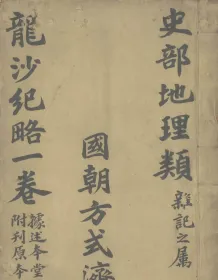 史部地理類
雜記之属
國朝方式濟
龍沙紀略一卷
據述本堂
附刊原本